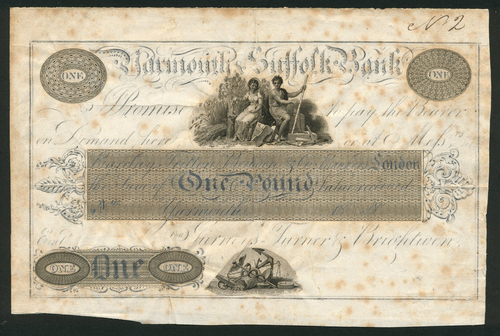 No 2
Yarmouth & Suffolk Bank
ONE ONE
I Promise to pay the Bearer
on Demand here or at Messrs
London
the Sum of One Pound Value received
Yarmouth
For Gurneys, Turner & Brightwen
ONE One ONE